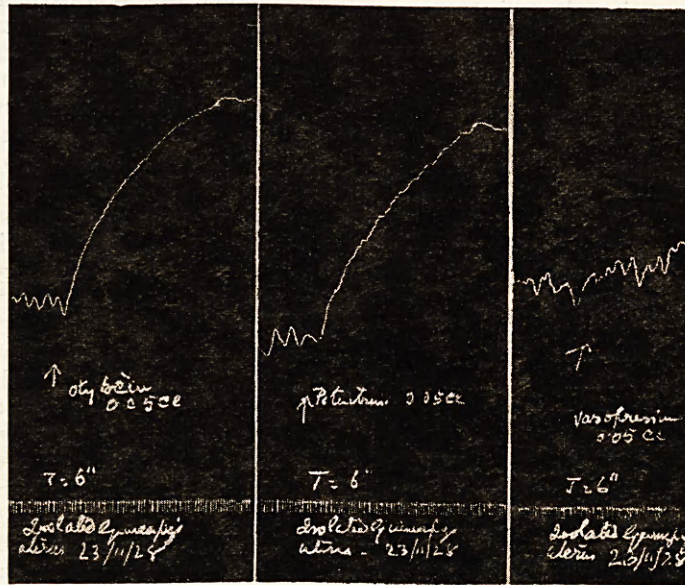 ↑ oxytocin
0.05 cc
T = 6"
Isolated Guineapig's
uterus 23/11/28
↑ Pituitrin 0.05 cc
T = 6"
Isolated Guineapig
uterus - 23/11/28
↑
Vasopressin
0.05 cc
T = 6"
Isolated
uterus 23/11/28